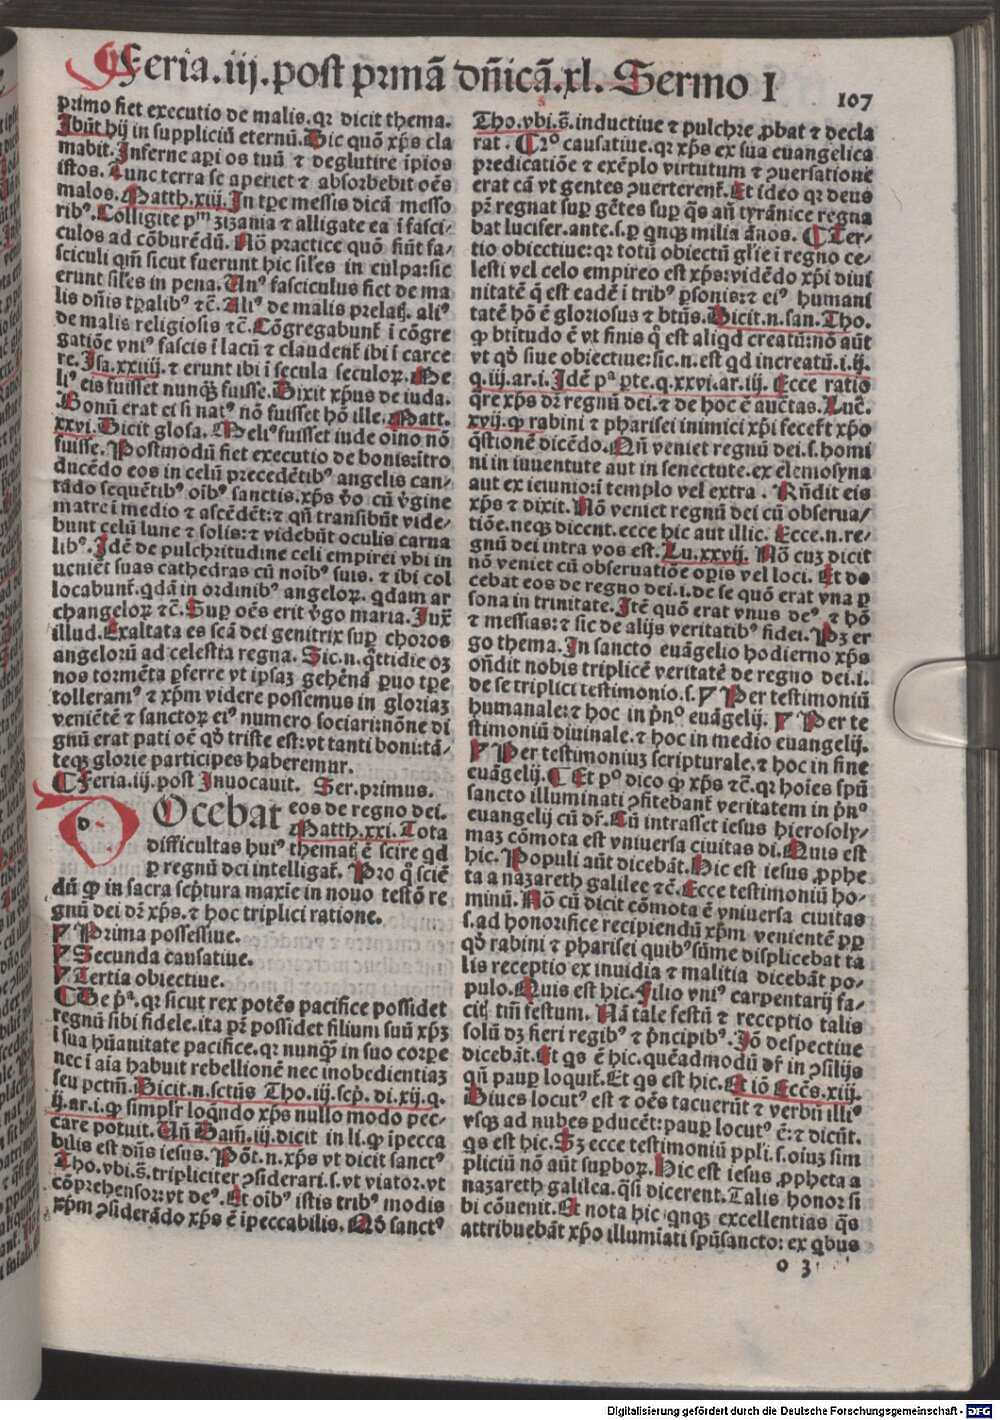 Feria.iij.post prımā dn̄icā.xl. Sermo I
107
primo fiet executio de malis.qꝛ dicit thema.
Ibūt hij in suppliciū eternū. Hic quō xp̄s cla
mabit. Inferne api os tuū ⁊ deglutire ip̄ios
istos. Tunc terra se aperiet ⁊ absorbebit oēs
malos. Matth.xiij. In tp̄e messis dicā messo
ribꝰ. Colligite pᵐ zizania ⁊ alligate ea ī fasci⸗
culos ad cōburēdū. Nō practice quō fiūt fa⸗
sciculi qm̄ sicut fuerunt hic siłes in culpa:sic
erunt siłes in pena. Unꝰ fasciculus fiet de ma
lis dn̄is tp̄alibꝰ ⁊c̄. Aliꝰ de malis prelatꝭ. aliꝰ
de malis religiosis ⁊c̄. Cōgregabunt̄ ī cōgre
gatiōe vniꝰ fascis ī lacū ⁊ claudent̄ ibi ī carce
re. Isa.xxiiij. ⁊ erunt ibi ī secula seculoꝝ. Me
liꝰ eis fuisset nunqꝫ fuisse. Dixit xp̄us de iuda.
Bonū erat ei si natꝰ nō fuisset hō ille. Matt.
xxvi. Dicit glosa. Meliꝰ fuisset iude oīno nō
fuisse. Postmodū fiet executio de bonis:ītro
ducēdo eos in celū precedētibꝰ angelis can⸗
tādo sequētibꝰ oībꝰ sanctis. xp̄s v̄o cū v̄gine
matre ī medio ⁊ ascēdēt:⁊ qn̄ transibūt vide⸗
bunt celū lune ⁊ solis:⁊ videbūt oculis carna
libꝰ. Idē de pulchritudine celi empirei vbi in
uenięt suas cathedras cū noībꝰ suis. ⁊ ibi col
locabunt̄.qdā in ordinibꝰ angeloꝝ. qdam ar
changeloꝝ ⁊c̄. Sup oēs erit v̄go maria. Iuxͣ
illud. Exaltata es scā dei genitrix sup choros
angelorū ad celestia regna. Sic.n.q̄ttidie oꝫ
nos tormēta ꝑferre vt ipsaꝫ gehēnā ꝑuo tp̄e
tolleramꝰ ⁊ xp̄m videre possemus in gloriaꝫ
veniētē ⁊ sanctoꝝ eiꝰ numero sociari:nōne di
gnū erat pati oē qḋ triste est:vt tanti boni:tā⸗
teqꝫ glorie participes haberemur.
¶ Feria.iij.post Inuocauit. Ser.primus.
DOcebat eos de regno dei.
Matth.xxi. Tota
difficultas huiꝰ thematꝭ ē scire qd
ꝑ regnū dei intelligat̄. Pro q̄ sciē
dū ꝙ in sacra scp̄tura maxīe in nouo testō re
gnū dei dꝛ xp̄s.⁊ hoc triplici ratione.
¶ Prima possessiue.
¶ Secunda causatiue.
¶ Tertia obiectiue.
¶ De pᵃ.qꝛ sicut rex potēs pacifice possidet
regnū sibi fidele.ita pꝛ̄ possidet filium suū xp̄ꝫ
ī sua hūanitate pacifice.qꝛ nunqꝫ in suo corpe
nec ī aīa habuit rebellionē nec inobedientiaꝫ
seu pctm̄. Dicit.n.sctūs Tho.iij.scp̄.di.xij.q.
ij.ar.i.ꝙ simplr̄ loqn̄do xp̄s nullo modo pec⸗
care potuit. Un̄ Dam̄.iij.dicit in li.ꝙ ipecca
bilis est dn̄s iesus. Pōt.n.xp̄s vt dicit sanctꝰ
Tho.vbi.s̄.tripliciter ꝯsiderari.s.vt viator.vt
cōprehensor:vt deꝰ. Et oībꝰ istis tribꝰ modis
xp̄m ꝯsiderādo xp̄s ē īpeccabilis. Qḋ sanctꝰ
Tho.vbi.s̄.inductiue ⁊ pulchre ꝓbat ⁊ decla
rat. ¶ 2ᵒ causatiue.qꝛ xp̄s ex sua euangelica
predicatiōe ⁊ exēplo virtutum ⁊ ꝯuersatione
erat cā vt gentes ꝯuerterent̄. Et ideo qꝛ deus
pꝛ̄ regnat sup gētes sup q̄s an̄ tyrānice regna
bat lucifer.ante.s.ꝑ qnqꝫ milia ānos. ¶ Ter⸗
tio obiectiue:qꝛ totū obiectū glīe ī regno ce⸗
lesti vel celo empireo est xp̄s:vidēdo xp̄i diui
nitatē q̄ est eadē ī tribꝰ ꝑsonis:⁊ eiꝰ humani
tatē hō ē gloriosus ⁊ btūs. Dicit.n.san.Tho.
ꝙ btitudo ē vt finis q̄ est aliqd creatū:nō aūt
vt qḋ siue obiectiue:sic.n.est qd increatū.i.ij.
q.iij.ar.i. Idē pᵃ ꝑte.q.xxvi.ar.iij. Ecce ratio
qre xp̄s dꝛ regnū dei.⁊ de hoc ē auc̄tas. Luc̄.
xvij.ꝙ rabini ⁊ pharisei inimici xp̄i fecer̄t xp̄o
q̄stionē dicēdo. Qn̄ veniet regnū dei.s.homi
ni in iuuentute aut in senectute.ex elemosyna
aut ex ieiunio:ī templo vel extra. Rn̄dit eis
xp̄s ⁊ dixit. Nō veniet regnū dei cū obserua⸗
tiōe.neqꝫ dicent.ecce hic aut illic. Ecce.n.re⸗
gnū dei intra vos est. Lu.xxvij. Nō cuꝫ dicit
nō veniet cū obseruatiōe oꝑis vel loci. Et do
cebat eos de regno dei.i.de se quō erat vna ꝑ
sona in trinitate. Itē quō erat vnus deꝰ ⁊ hō
⁊ messias:⁊ sic de alijs veritatibꝰ fidei. Pꝫ er
go thema. In sancto euāgelio hodierno xp̄s
on̄dit nobis triplicē veritatē de regno dei.i.
de se triplici testimonio.s. ¶ Per testimoniū
humanale:⁊ hoc in p̄nᵒ euāgelij. ¶ Per te
stimoniū diuinale.⁊ hoc in medio euangelij.
¶ Per testimoniuꝫ scripturale.⁊ hoc in fine
euāgelij. ¶ Et pᵒ dico ꝙ xp̄s ⁊c̄.qꝛ hoīes spū
sancto illuminati ꝯfitebant̄ veritatem in p̄nᵒ
euangelij cū dr̄. Cū intrasset iesus hierosoly⸗
maꝫ cōmota est vniuersa ciuitas di. Quis est
hic. Populi aūt dicebāt. Hic est iesus ꝓphe
ta a nazareth galilee ⁊c̄. Ecce testimoniū ho⸗
minū. Nō cū dicit cōmota ē vniuersa ciuitas
s.ad honorifice recipiendū xp̄m venientē ꝓp
qḋ rabini ⁊ pharisei quibꝰ sūme displicebat ta
lis receptio ex inuidia ⁊ malitia dicebāt po⸗
pulo. Quis est hic. Filio vniꝰ carpentarij fa⸗
citꝭ tm̄ festum. Nā tale festū ⁊ receptio talis
solū dꝫ fieri regibꝰ ⁊ p̄ncipibꝰ. Iō despectiue
dicebāt. Et qs ē hic.quēadmodū dr̄ in ꝯsilijs
qn̄ paup loquit̄. Et qs est hic. Et iō Ecc̄s.xiij.
Diues locutꝰ est ⁊ oēs tacuerūt ⁊ verbū illiꝰ
vsqꝫ ad nubes ꝑducēt:paup locutꝰ ē:⁊ dicūt.
qs est hic. Sꝫ ecce testimoniū ppli.s.oiuꝫ sim
pliciū nō aūt supboꝝ. Hic est iesus ꝓpheta a
nazareth galilea.q̄si dicerent. Talis honor si
bi cōuenit. Et nota hic qnqꝫ excellentias q̄s
attribuebāt xp̄o illumīati spūsancto:ex qbus
o 3
Digitalisierung gefördert durch die Deutsche Forschungsgemeinschaft - DFG